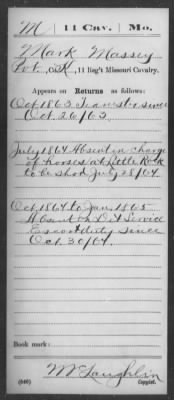 M | 11 Cav. | Mo.
Mark Massey
Pvt, Co. K, 11 Reg't Missouri Cavalry.
Appears on Returns as follows:
Oct 1863 Transt. since
Oct. 26/63.
July 1864 Absent in charge
of horses at Little Rock
to be shod July 28/64.
Oct 1864 to Jan 1865
Absent on Det Service
Escort duty since
Oct. 30/64.
Book mark:
McLaughlin
(646) Copyist.